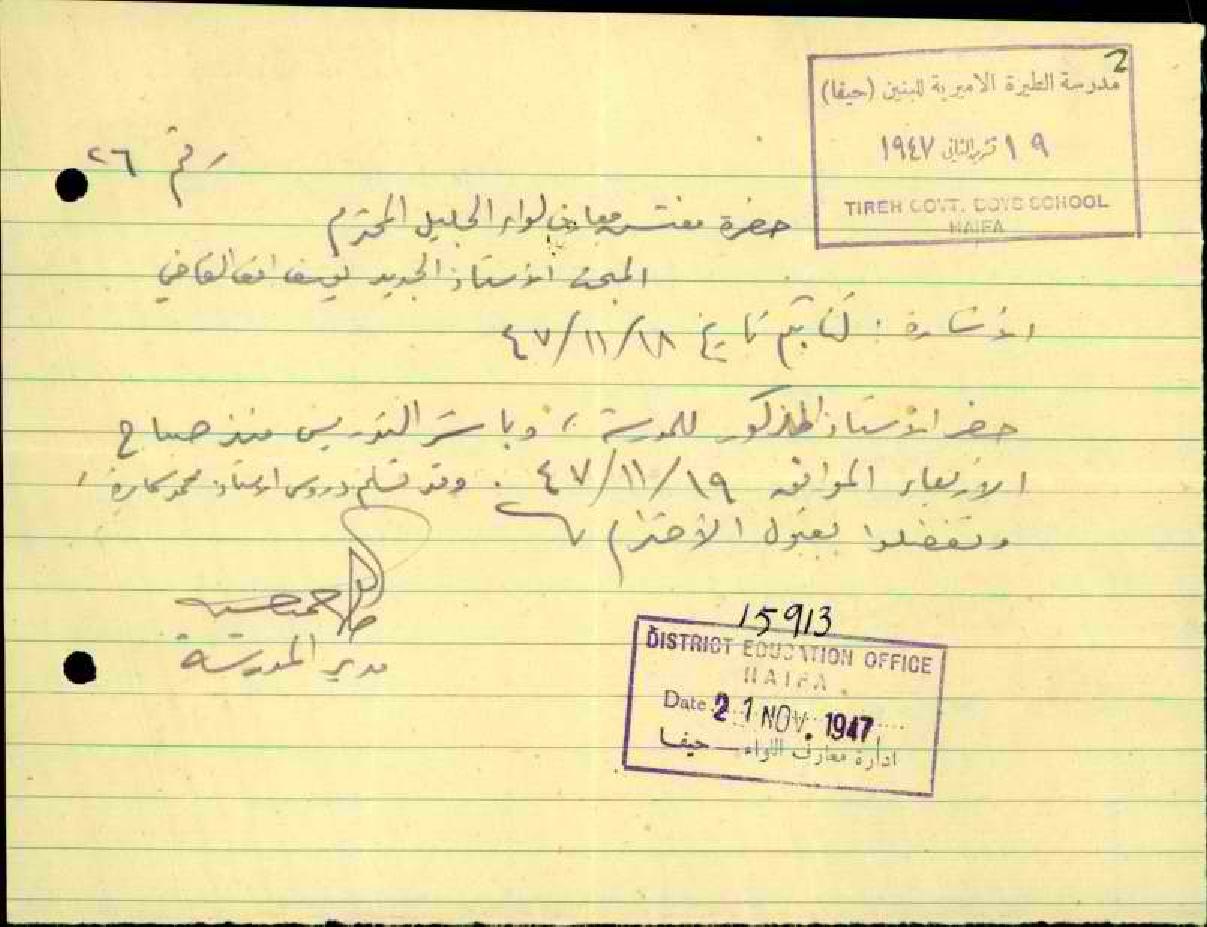 2
مدرسة الطيرة الاميرية للبنين (حيفا)
١٩ تشرين الثاني ١٩٤٧
TIREH GOVT. BOYS SCHOOL
HAIFA
رقم ٢٦
حضرة مفتش معارف لواء الجليل المحترم
المبحث الأستاذ الجديد يوسف القاضي
الأشارة : كتابكم تاريخ ٤٧/١١/١٨
حضر الأستاذ المذكور للمدرسة ، وباشر التدريس منذ صباح
الأربعاء الموافق ٤٧/١١/١٩ . وقد تسلم دروس الاستاذ محمد
وتفضلوا بقبول الأحترام
مدير المدرسة
15913
DISTRICT EDUCATION OFFICE
HAIFA.
Date 21 NOV. 1947
ادارة معارف اللواء — حيفا